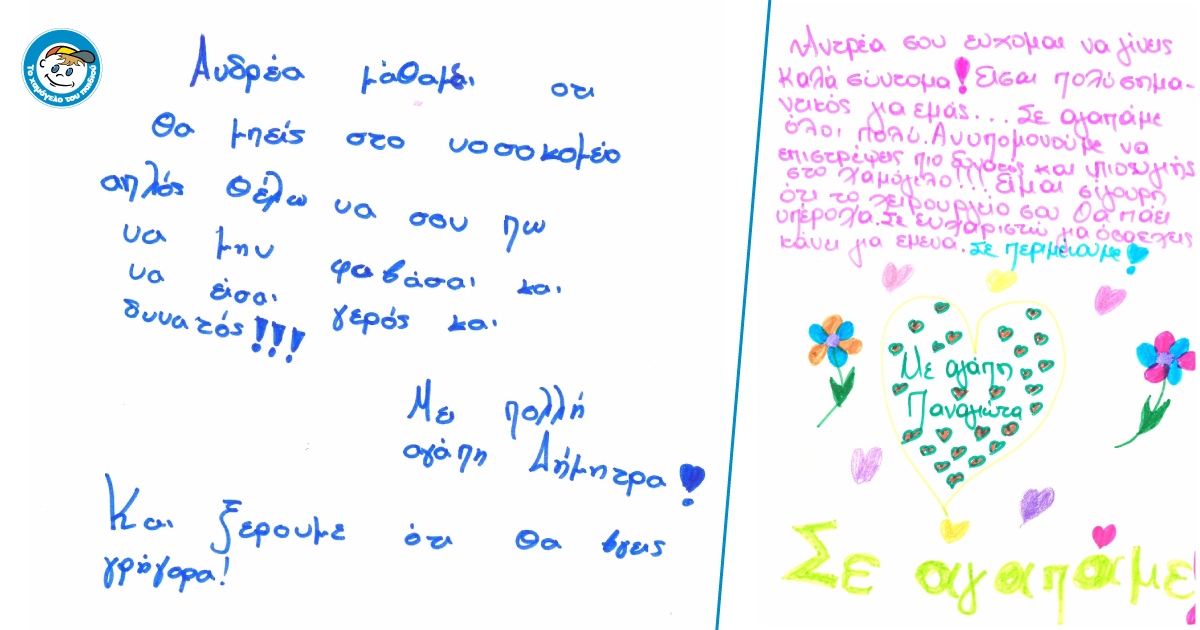 Το χαμόγελο του παιδιού
Ανδρέα μάθαμε οτι
Θα μπείς στο νοσοκομείο
απλός θέλω να σου πω
να μην φοβάσαι και
να είσαι γερός και
δυνατός!!!
Με πολλή
αγάπη Δήμητρα!
Και ξερουμε ότι θα βγεις
γρήγορα!
Αντρέα σου ευχομαι να γίνεις
καλά σύντομα! Εισαι πολύ σημα-
ντικός για εμάς... Σε αγαπάμε
όλοι πολύ. Ανυπομονούμε να
επιστρέψεις πιο δυνατός και
στο χαμόγελο!!! Είμαι σίγουρη
ότι το χειρουργείο σου θα πάει
υπέροχα. Σε ευχαριστώ για όσα εχεις
κάνει για εμενα. Σε περιμένουμε!
Με αγάπη
Παναγιώτα
Σε αγαπάμε!